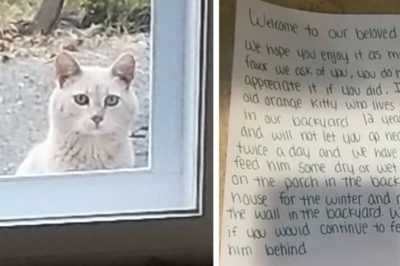 Welcome to our beloved
We hope you enjoy it as m
favor we ask of you, you do n
appreciate it if you did. I
old orange kitty who lives
in our backyard 12 yea
and will not let you go nea
twice a day and we have
feed him some dry or wet
on the porch in the back
house for the winter and n
the wall in the backyard. W
if you would continue to fe
him behind